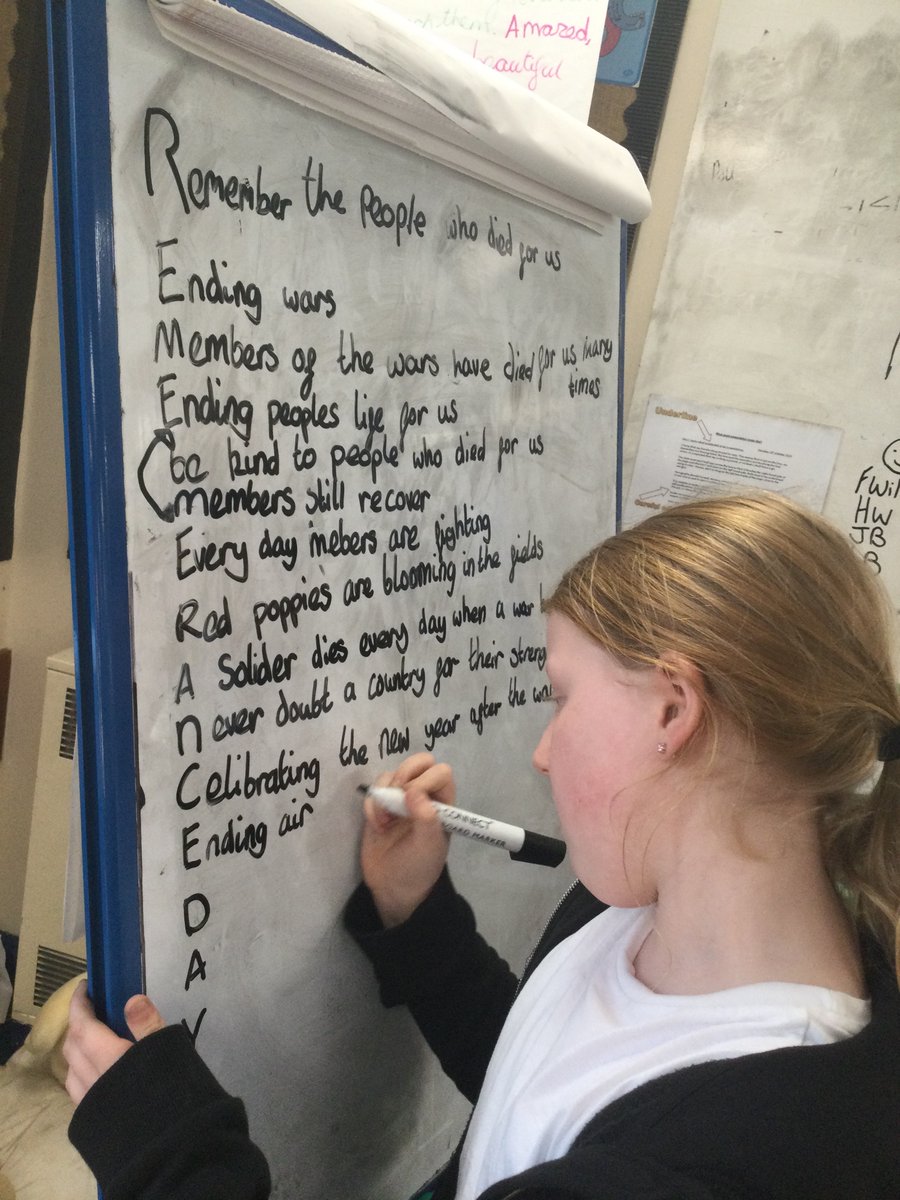 them. Amazed,
beautiful
Remember the people who died for us
Ending wars
Members of the wars have died for us many
times
Ending peoples life for us
be kind to people who died for us
members still recover
Every day mebers are fighting
Red poppies are blooming in the fields
A Solider dies every day when a war
never doubt a country for their
Celibrating the new year after the
Ending air
D
A
Y
Underline
FWil
HW
JB
B
CONNECT
BOARD MARKER